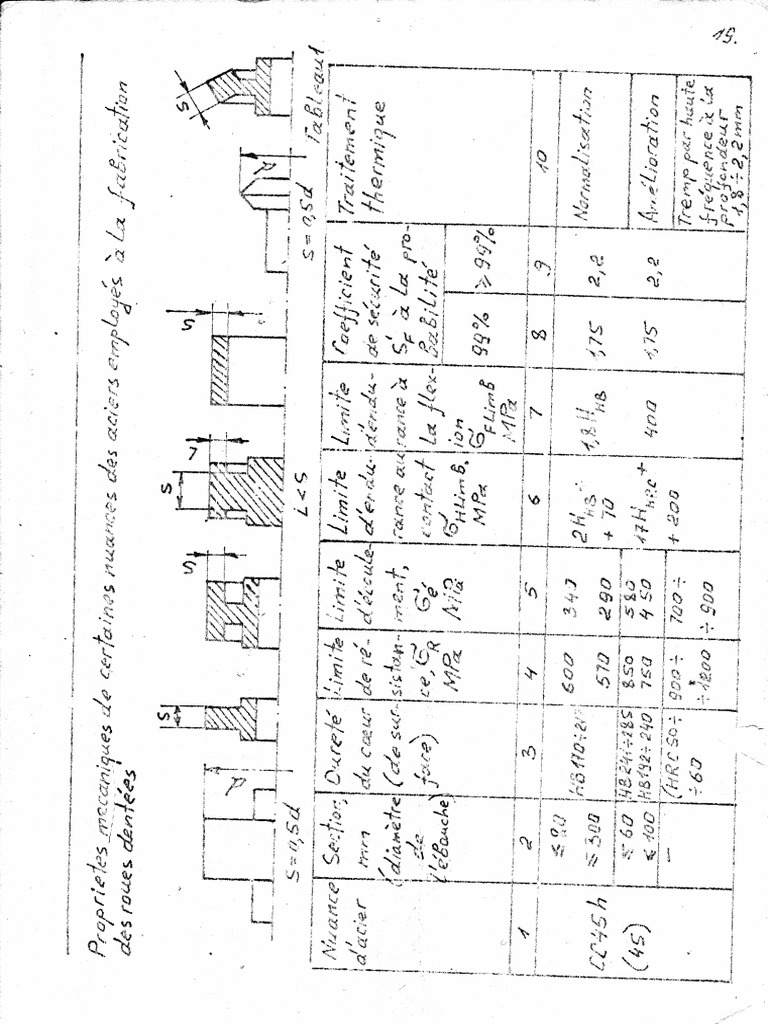 15.
Proprietes mecaniques de certaines nuances des aciers employés à la fabrication
des roues dentées
S
S
S
7
S
S
d
d
S=0,5d
L<S
S=0,5d
Tableau 1
Nuance
d'acier
Section,
mm
(diamètre
de
l'ébauche)
Dureté
du coeur
(de sur-
face)
Limite
de ré-
sistan-
ce, σR
MPa
Limite
d'écoule-
ment,
σé
MPa
Limite
d'endu-
rance au
contact
σHLimb,
MPa
Limite
d'endu-
rance à
la flex-
ion
σFLimb
MPa
Coefficient
de sécurité
SF à la pro-
babilité
99%
≥99%
Traitement
thermique
1 2 3 4 5 6 7 8 9 10
CC45h
(45)
≤ 300
600 340
570 290
2HHB
+ 70
1,8HHB
1,75 2,2 Normalisation
≤ 60 HB241÷285 850 580
≤ 100 HB192÷240 750 450
17HHRC +
+ 200
400 1,75 2,2 Amélioration
– (HRC50÷
÷60
900÷
÷1200
700÷
÷900
Tremp par haute
fréquence à la
profondeur
1,8÷2,2mm